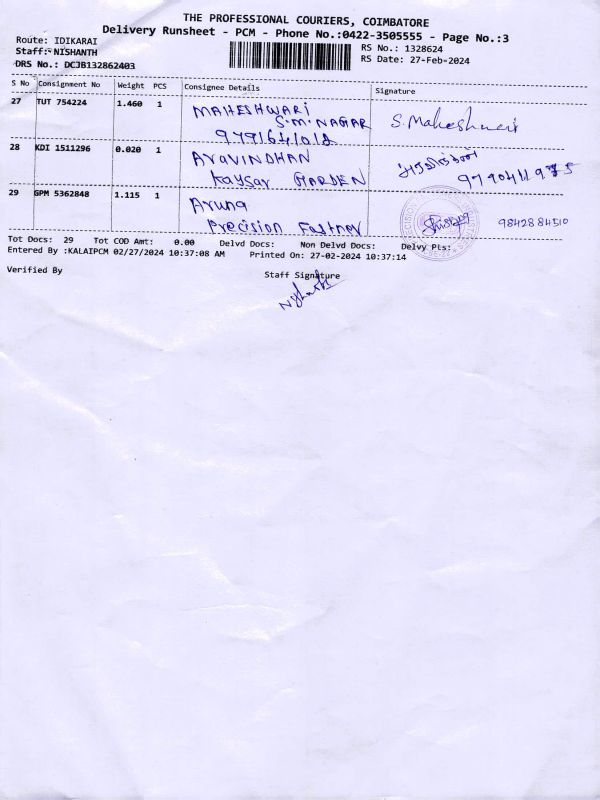 THE PROFESSIONAL COURIERS, COIMBATORE
Delivery Runsheet - PCM - Phone No.:0422-3505555 - Page No.:3
Route: IDIKARAI
RS No.: 1328624
Staff: NISHANTH
RS Date: 27-Feb-2024
DRS No.: DCJB132862403
S No Consignment No Weight PCS Consignee Details Signature
27 TUT 754224 1.460 1 MAHESHWARI
S.M.NAGAR S. Maheshwari
28 KDI 1511296 0.020 1 ARAVINDHAN
Kaysar GARDEN
29 GPM 5362848 1.115 1 Aruna
Precision Fastner 9842884510
Tot Docs: 29 Tot COD Amt: 0.00 Delvd Docs: Non Delvd Docs: Delvy Pts:
Entered By :KALAIPCM 02/27/2024 10:37:08 AM Printed On: 27-02-2024 10:37:14
Verified By Staff Signature